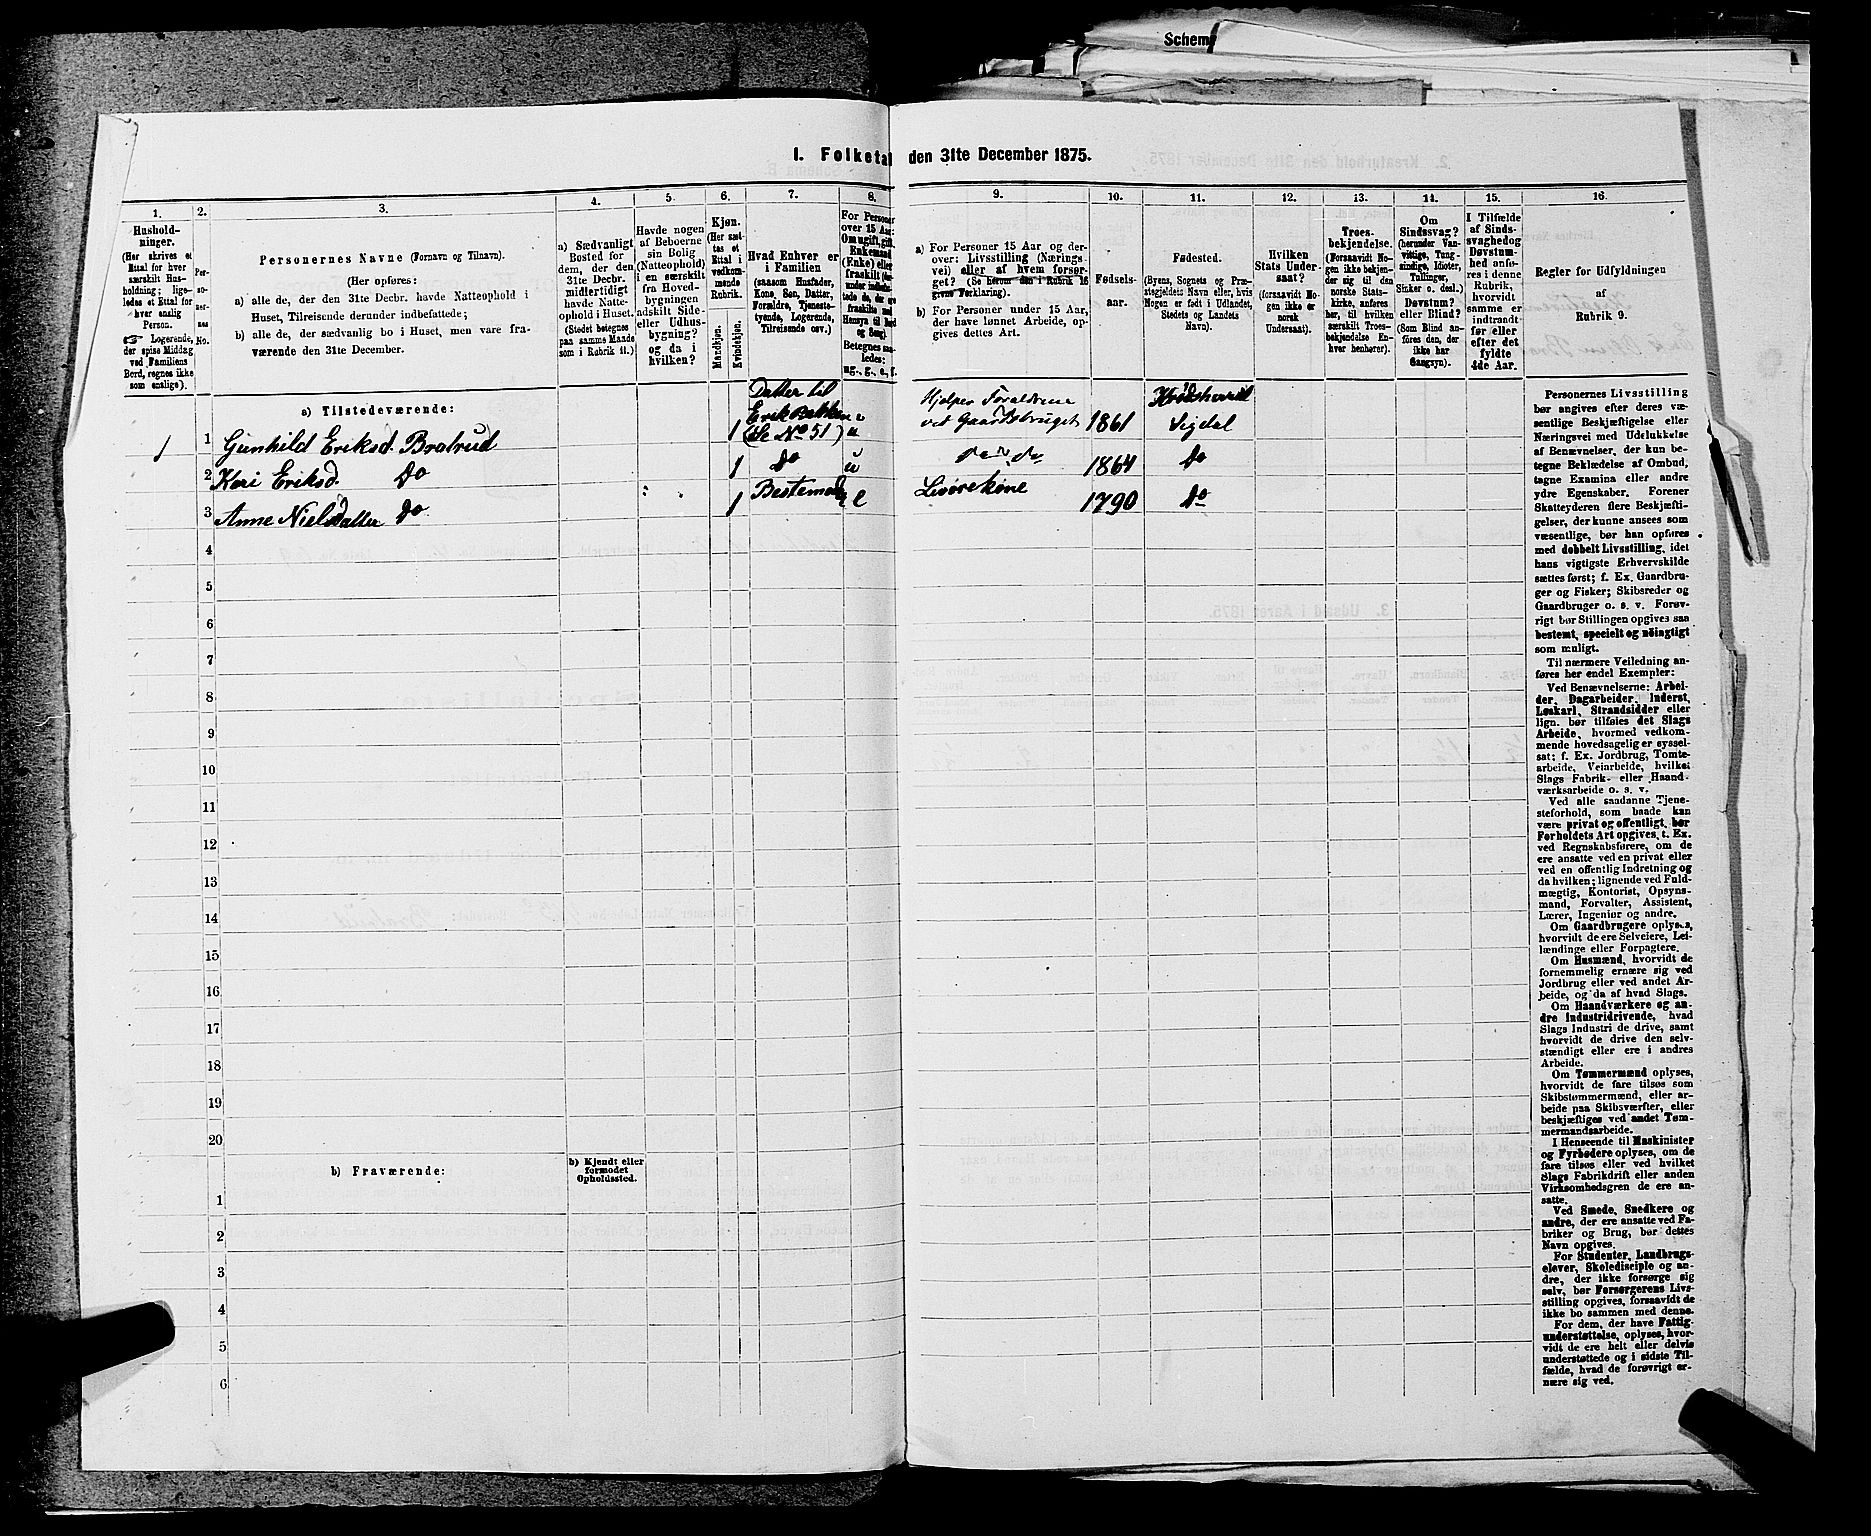 Schem
I. Folketal den 31te December 1875.
1.
Hushold-
ninger.
(Her skrives et
Ettal for hver
særskilt Hus-
holdning; lige-
ledes et Ettal for
hver enslig
Person.
☞ Logerende,
der spise Middag
ved Familiens
Bord, regnes ikke
som enslige).
2.
Per-
so-
ner-
nes
No.
3.
Personernes Navne (Fornavn og Tilnavn).
(Her opføres:
a) alle de, der den 31te Decbr. havde Natteophold i
Huset, Tilreisende derunder indbefattede;
b) alle de, der sædvanlig bo i Huset, men vare fra-
værende den 31te December.
4.
a) Sædvanligt
Bosted for
dem, der den
31te Decbr.
midlertidigt
havde Natte-
ophold i Huset.
(Stedet betegnes
paa samme Maade
som i Rubrik 11.)
5.
Havde nogen
af Beboerne
sin Bolig
(Natteophold)
i en særskilt
fra Hoved-
bygningen
adskilt Side-
eller Udhus-
bygning?
og da i
hvilken?
6.
Kjøn.
(Her sæt-
tes et
Ettal i
vedkom-
mende
Rubrik.
Mandkjøn.
Kvindekjøn.
7.
Hvad Enhver er
i Familien
(saasom Husfader,
Kone, Søn, Datter,
Forældre, Tjeneste-
tyende, Logerende,
Tilreisende osv.)
8.
For Personer
over 15 Aar:
Om ugift, gift,
Enkemand
(Enke) eller
fraskilt
Betegnes saa-
ledes:
ug., g., e., f.
9.
a) For Personer 15 Aar og der-
over: Livsstilling (Nærings-
vei) eller af hvem forsør-
get? (Se herom den i Rubrik 16
givne Forklaring).
b) For Personer under 15 Aar,
der have lønnet Arbeide, op-
gives dettes Art.
10.
Fødsels-
aar.
11.
Fødested.
(Byens, Sognets og Præ-
stegjeldets Navn eller, hvis
Nogen er født i Udlandet,
Stedets og Landets
Navn).
12.
Hvilken
Stats Under-
saat?
(forsaavidt No-
gen ikke er
norsk
Undersaat).
13.
Troes-
bekjendelse.
(Forsaavidt No-
gen ikke bekjen-
der sig til den
norske Stats-
kirke, anføres
her, til hvilken
særskilt Troes-
bekjendelse En-
hver henhører).
14.
Om
Sindssvag?
(herunder Van-
vittige, Tung-
sindige, Idioter,
Tullinger,
Sinker o. desl.)
Døvstum?
eller Blind?
(Som Blind an-
føres den, der
ikke har
Gangsyn).
15.
I Tilfælde
af Sinds-
svaghed og
Døvstum-
hed anfø-
res i denne
Rubrik,
hvorvidt
samme er
indtraadt
før eller
efter det
fyldte
4de Aar.
16.
Regler for Udfyldningen
af
Rubrik 9.
a) Tilstedeværende:
1 1 Gunhild Eriksd. Bratrud 1 Datter til Erik Bakken (Se No 51) u Hjelper Forældrene ved Gaardsbruget 1861 Sigdal
2 Kari Eriksd. Do 1 Do u do do 1864 Do
3 Anne Nielsdatter Do 1 Bestemoder e 1790 Do
4
5
6
7
8
9
10
11
12
13
14
15
16
17
18
19
20
b) Fraværende:
b) Kjendt eller
formodet
Opholdssted.
1
2
3
4
5
6
Personernes Livsstilling
bør angives efter deres væ-
sentlige Beskjæftigelse eller
Næringsvei med Udelukkelse
af Benævnelser, der kun be-
tegne Beklædelse af Ombud,
tagne Examina eller andre
ydre Egenskaber. Forener
Skatteyderen flere Beskjæfti-
gelser, der kunne ansees som
væsentlige, bør han opføres
med dobbelt Livsstilling, idet
hans vigtigste Erhvervskilde
sættes først; f. Ex. Gaardbru-
ger og Fisker; Skibsreder og
Gaardbruger o. s. v. Forøv-
rigt bør Stillingen opgives saa
bestemt, specielt og nøiagtigt
som muligt.
Til nærmere Veiledning an-
føres her endel Exempler:
Ved Benævnelserne: Arbei-
der, Dagarbeider, Inderst,
Løskarl, Strandsidder eller
lign. bør tilføies det Slags
Arbeide, hvormed vedkom-
mende hovedsagelig er syssel-
sat; f. Ex. Jordbrug, Tomte-
arbeide, Veiarbeide, hvilket
Slags Fabrik- eller Haand-
værksarbeide o. s. v.
Ved alle saadanne Tjene-
steforhold, som baade kan
være privat og offentligt, bør
Forholdets Art opgives, t. Ex.
ved Regnskabsførere, om de
ere ansatte ved en privat eller
ved en offentlig Indretning og
da hvilken; lignende ved Fuld-
mægtig, Kontorist, Opsyns-
mand, Forvalter, Assistent,
Lærer, Ingeniør og andre.
Om Gaardbrugere oplyses,
hvorvidt de ere Selveiere, Lei-
lændinge eller Forpagtere.
Om Husmænd, hvorvidt de
fornemmelig ernære sig ved
Jordbrug eller ved andet Ar-
beide, og da af hvad Slags.
Om Haandværkere og an-
dre Industridrivende, hvad
Slags Industri de drive, samt
hvorvidt de drive den selv-
stændigt eller ere i andres
Arbeide.
Om Tømmermænd oplyses,
hvorvidt de fare tilsøs som
Skibstømmermænd, eller ar-
beide paa Skibsværfter, eller
beskjæftiges ved andet Tøm-
mermandsarbeide.
I Henseende til Maskinister
og Fyrbødere oplyses, om de
fare tilsøs eller ved hvilket
Slags Fabrikdrift eller anden
Virksomhedsgren de ere an-
satte.
Ved Smede, Snedkere og
andre, der ere ansatte ved Fa-
briker og Brug, bør dettes
Navn opgives.
For Studenter, Landbrugs-
elever, Skoledisciple og an-
dre, der ikke forsørge sig
selv, bør Forsørgerens Livs-
stilling opgives, forsaavidt de
ikke bo sammen med denne.
For dem, der have Fattig-
understøttelse, oplyses, hvor-
vidt de ere helt eller delvis
understøttede og i sidste Til-
fælde, hvad de forøvrigt er-
nære sig ved.